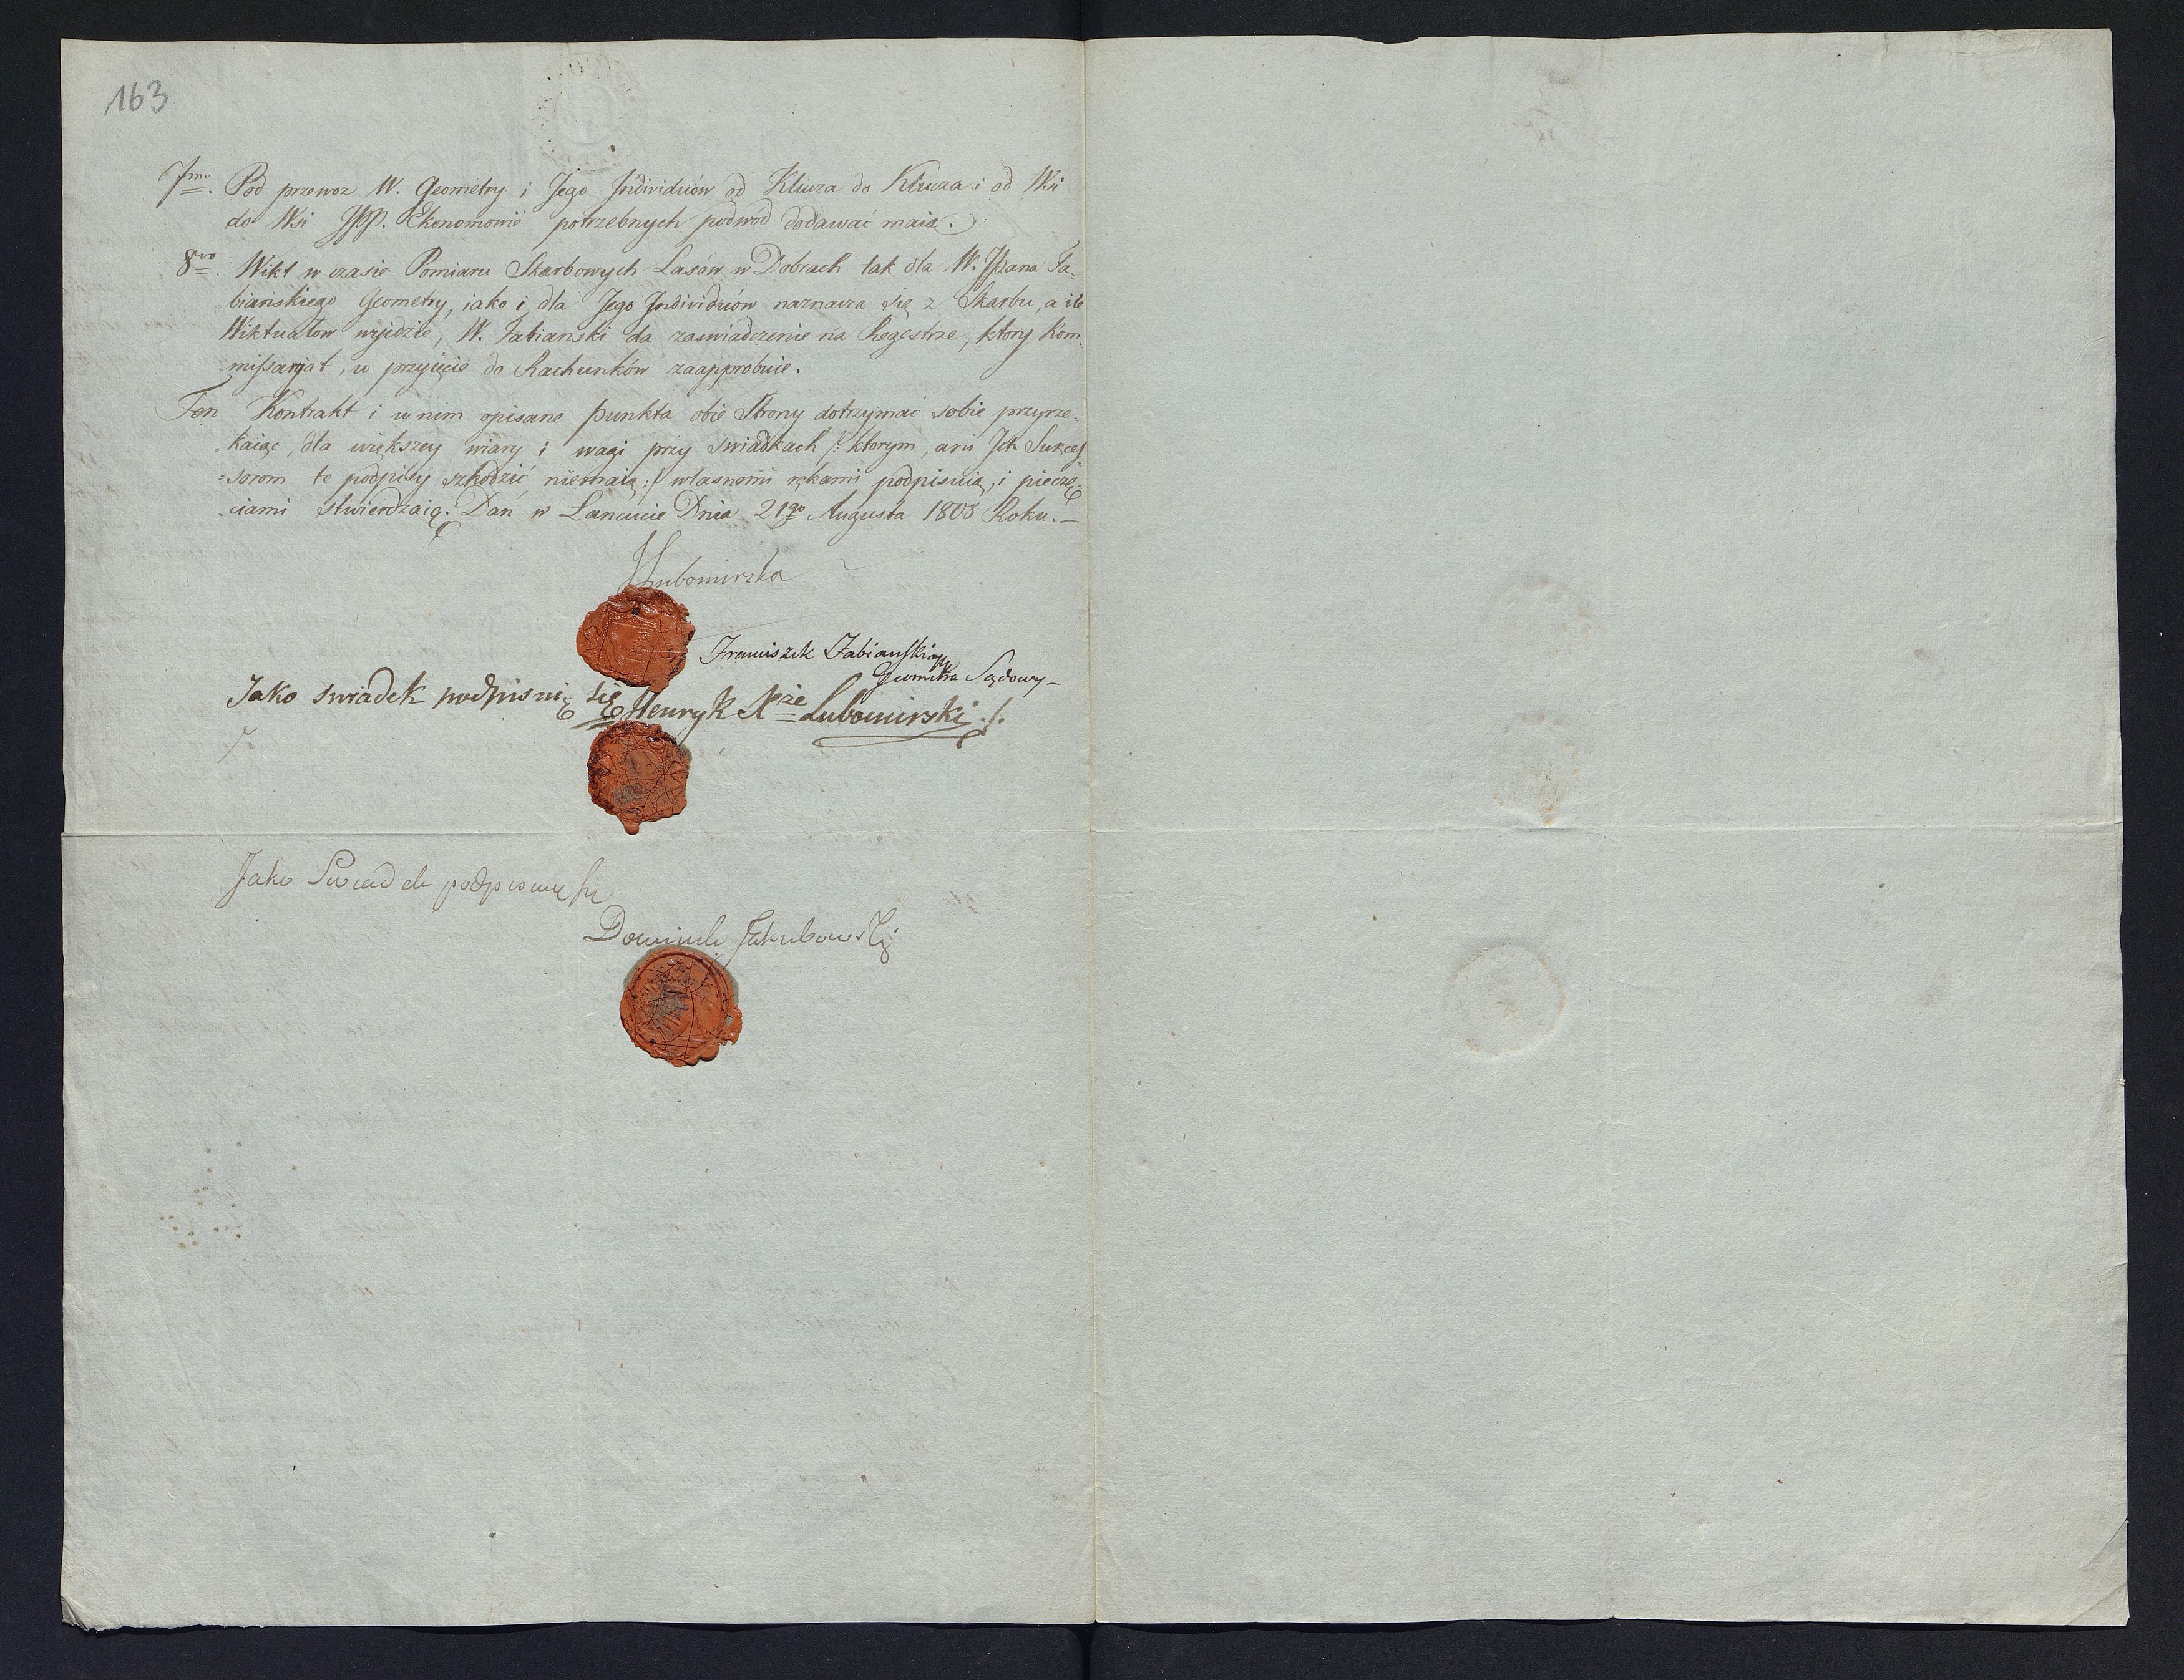 163
7mo. Pod przewoz W. Geometry i Jego Individuów od Klucza do Klucza i od Wsi
do Wsi JPP. Ekonomowie potrzebnych podwód dodawać maią.
8vo. Wikt w czasie Pomiaru Skarbowych Lasów w Dobrach tak dla W. JPana Fa=
biańskiego Geometry, iako i dla Jego Individuów naznacza się z Skarbu, a ile
Wiktuałow wyidzie, W. Fabianski da zaswiadczenie na Regestrze, ktory Kom=
missaryat, w przyięcie do Rachunków zaapprobuie.
Ten Kontrakt i w nim opisane punkta obie Strony dotrzymać sobie przyrze=
kaiąc, dla większey wiary i wagi przy swiadkach /: ktorym, ani Ich Sukces=
=sorom te podpisy szkodzić niemaią :/ własnemi rękami podpisuią, i pieczę=
ciami stwierdzaią. Dań w Lancucie Dnia 21go Augusta 1808 Roku. —
Lubomirska
Franciszek Fabiański mp
Geometra Sądowy —
Jako swiadek podpisuię się Henryk Xże Lubomirski ./.
Jako Swiadek podpisuię się
Dominik Jakubowski